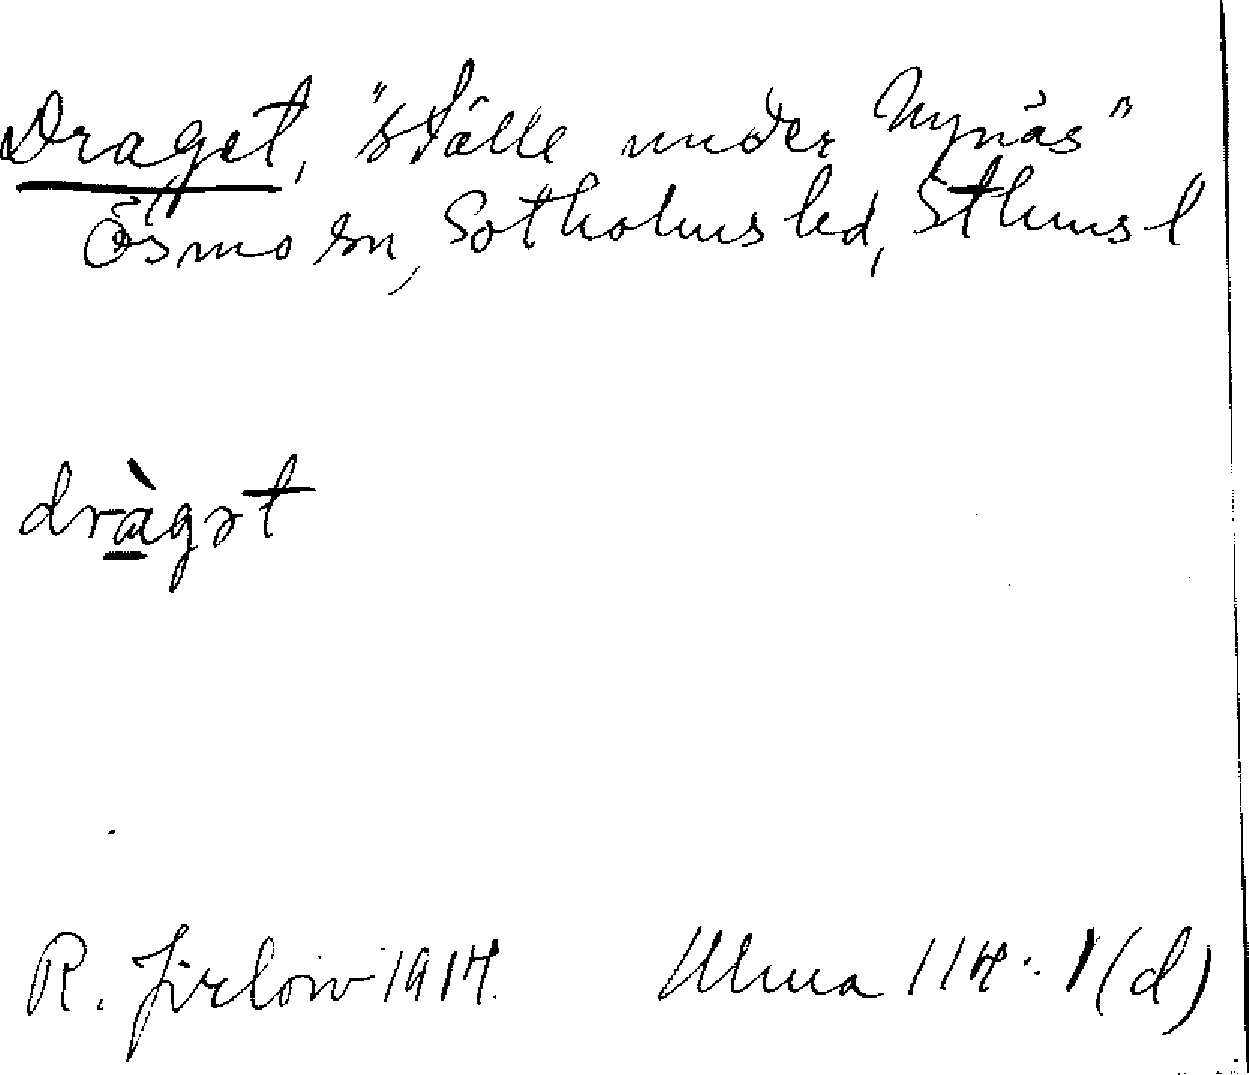 Draget, "ställe under Nynäs"
Ösmo sn, Sotholms hd, Sthms l
dràgət
R. Jirlow 1914. Ulma 114:1(d)